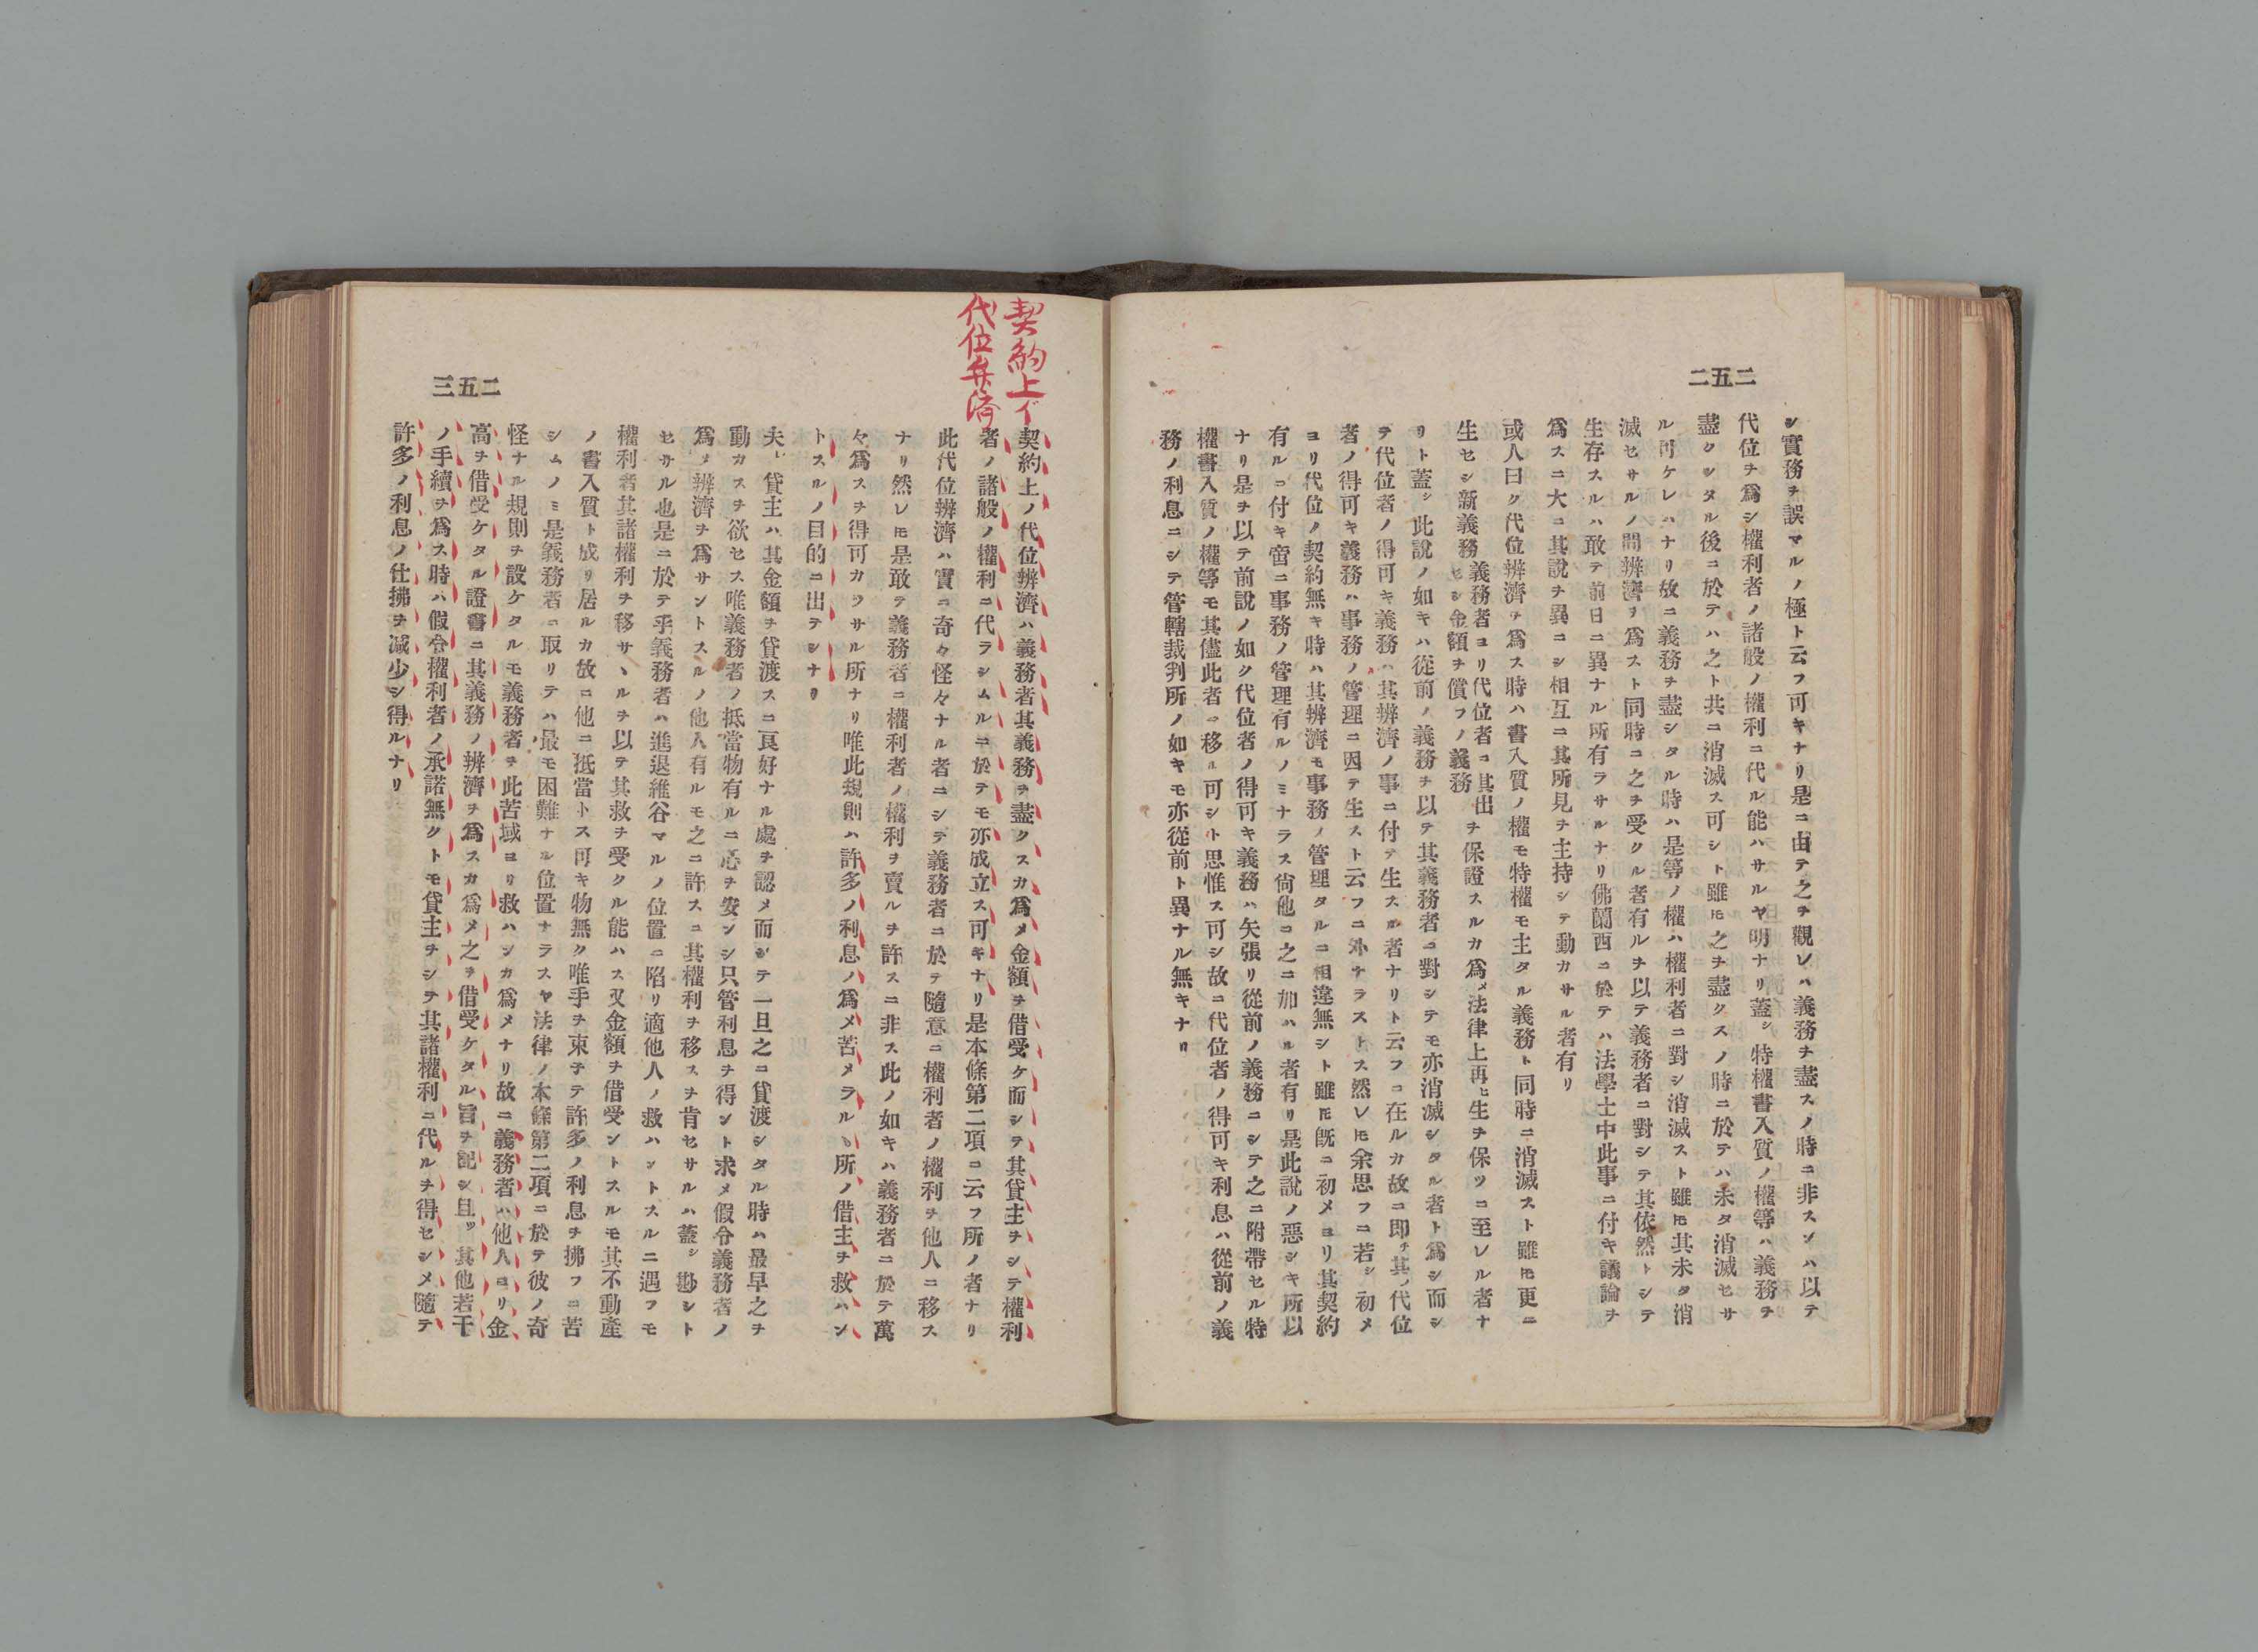 二五二
シ實務ヲ誤マルノ極ト云フ可キナリ是ニ由テ之ヲ觀レハ義務ヲ盡スノ時ニ非スンハ以テ
代位ヲ爲シ權利者ノ諸般ノ權利ニ代ル能ハサルヤ明ナリ蓋シ特權書入質ノ權等ハ義務ヲ
盡クシタル後ニ於テハ之ト共ニ消滅ス可シト雖モ之ヲ盡クスノ時ニ於テハ未タ消滅セサ
ル可ケレハナリ故ニ義務ヲ盡シタル時ハ是等ノ權ハ權利者ニ對シ消滅スト雖モ其未タ消
滅セサルノ間辨濟ヲ爲スト同時ニ之ヲ受クル者有ルヲ以テ義務者ニ對シテ其依然トシテ
生存スルハ敢テ前日ニ異ナル所有ラサルナリ佛蘭西ニ於テハ法學士中此事ニ付キ議論ヲ
爲スニ大ニ其說ヲ異ニシ相互ニ其所見ヲ主持シテ動カサル者有リ
或人曰ク代位辨濟ヲ爲ス時ハ書入質ノ權モ特權モ主タル義務ト同時ニ消滅スト雖モ更ニ
生セシ新義務義務者ヨリ代位者ニ其出セシ金額ヲ償フノ義務ヲ保證スルカ爲メ法律上再ヒ生ヲ保ツニ至レル者ナ
リト蓋シ此說ノ如キハ從前ノ義務ヲ以テ其義務者ニ對シテモ亦消滅シタル者ト爲シ而シ
テ代位者ノ得可キ義務ハ其辨濟ノ事ニ付テ生スル者ナリト云フニ在ルカ故ニ即チ其代位
者ノ得可キ義務ハ事務ノ管理ニ因テ生スト云フニ外ナラストス然レモ余思フニ若シ初メ
ヨリ代位ノ契約無キ時ハ其辨濟モ事務ノ管理タルニ相違無シト雖モ既ニ初メヨリ其契約
有ルニ付キ啻ニ事務ノ管理有ルノミナラス尙他ニ之ニ加ハル者有リ是此說ノ惡シキ所以
ナリ是ヲ以テ前說ノ如ク代位者ノ得可キ義務ハ矢張リ從前ノ義務ニシテ之ニ附帶セル特
權書入質ノ權等モ其儘此者ニ移ル可シト思惟ス可シ故ニ代位者ノ得可キ利息ハ從前ノ義
務ノ利息ニシテ管轄裁判所ノ如キモ亦從前ト異ナル無キナリ
二五三
契約上ノ
代位弁済
契約上ノ代位辨濟ハ義務者其義務ヲ盡クスカ爲メ金額ヲ借受ケ而シテ其貸主ヲシテ權利
者ノ諸般ノ權利ニ代ラシムルニ於テモ亦成立ス可キナリ是本條第二項ニ云フ所ノ者ナリ
此代位辨濟ハ實ニ奇々怪々ナル者ニシテ義務者ニ於テ隨意ニ權利者ノ權利ヲ他人ニ移ス
ナリ然レモ是敢テ義務者ニ權利者ノ權利ヲ賣ルヲ許スニ非ス此ノ如キハ義務者ニ於テ萬
々爲スヲ得可カラサル所ナリ唯此規則ハ許多ノ利息ノ爲メ苦メラルヽ所ノ借主ヲ救ハン
トスルノ目的ニ出テシナリ
夫レ貸主ハ其金額ヲ貸渡スニ良好ナル處ヲ認メ而シテ一旦之ニ貸渡シタル時ハ最早之ヲ
動カスヲ欲セス唯義務者ノ抵當物有ルニ心ヲ安ンシ只管利息ヲ得ント求メ假令義務者ノ
爲メ辨濟ヲ爲サントスルノ他人有ルモ之ニ許スニ其權利ヲ移スヲ肯セサルハ蓋シ尠シト
セサル也是ニ於テ乎義務者ハ進退維谷マルノ位置ニ陷リ適他人ノ救ハントスルニ遇フモ
權利者其諸權利ヲ移サヽルヲ以テ其救ヲ受クル能ハス又金額ヲ借受ントスルモ其不動產
ノ書入質ト成リ居ルカ故ニ他ニ抵當トス可キ物無ク唯手ヲ束子テ許多ノ利息ヲ拂フニ苦
シムノミ是義務者ニ取リテハ最モ困難ナル位置ナラスヤ法律ノ本條第二項ニ於テ彼ノ奇
怪ナル規則ヲ設ケタルモ義務者ヲ此苦域ヨリ救ハンカ爲メナリ故ニ義務者ハ他人ヨリ金
高ヲ借受ケタル證書ニ其義務ノ辨濟ヲ爲スカ爲メ之ヲ借受ケタル旨ヲ記シ且ツ其他若干
ノ手續ヲ爲ス時ハ假令權利者ノ承諾無クトモ貸主ヲシテ其諸權利ニ代ルヲ得セシメ隨テ
許多ノ利息ノ仕拂ヲ減少シ得ルナリ